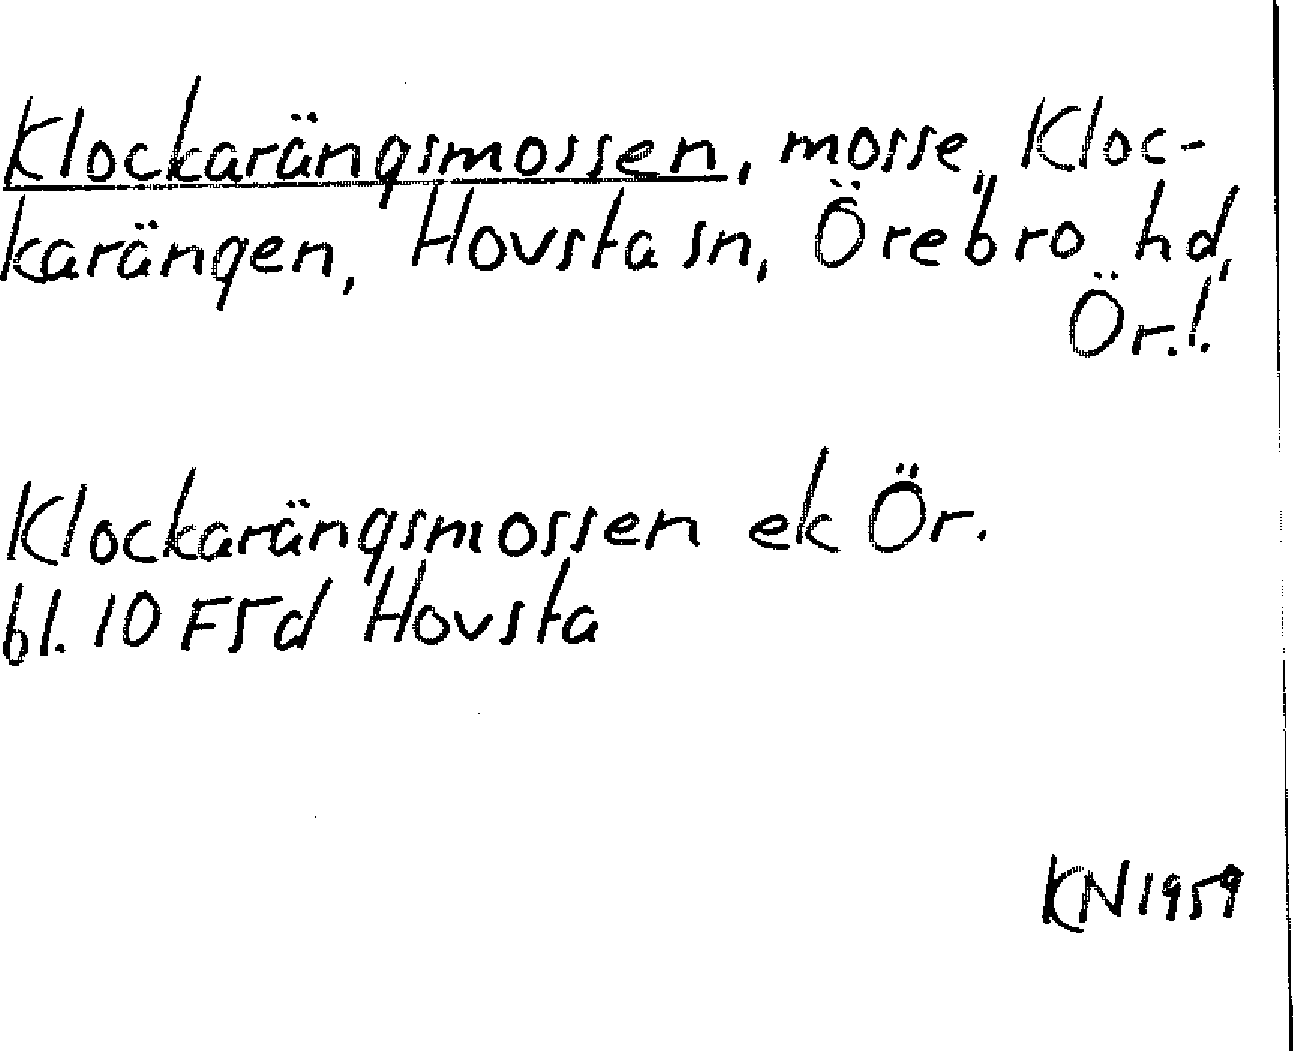 Klockarängsmossen, mosse, Kloc-
karängen, Hovsta sn, Örebro hd,
Ör.!
Klockarängsmossen ek Ör.
bl. 10 F5d Hovsta
KN 1959